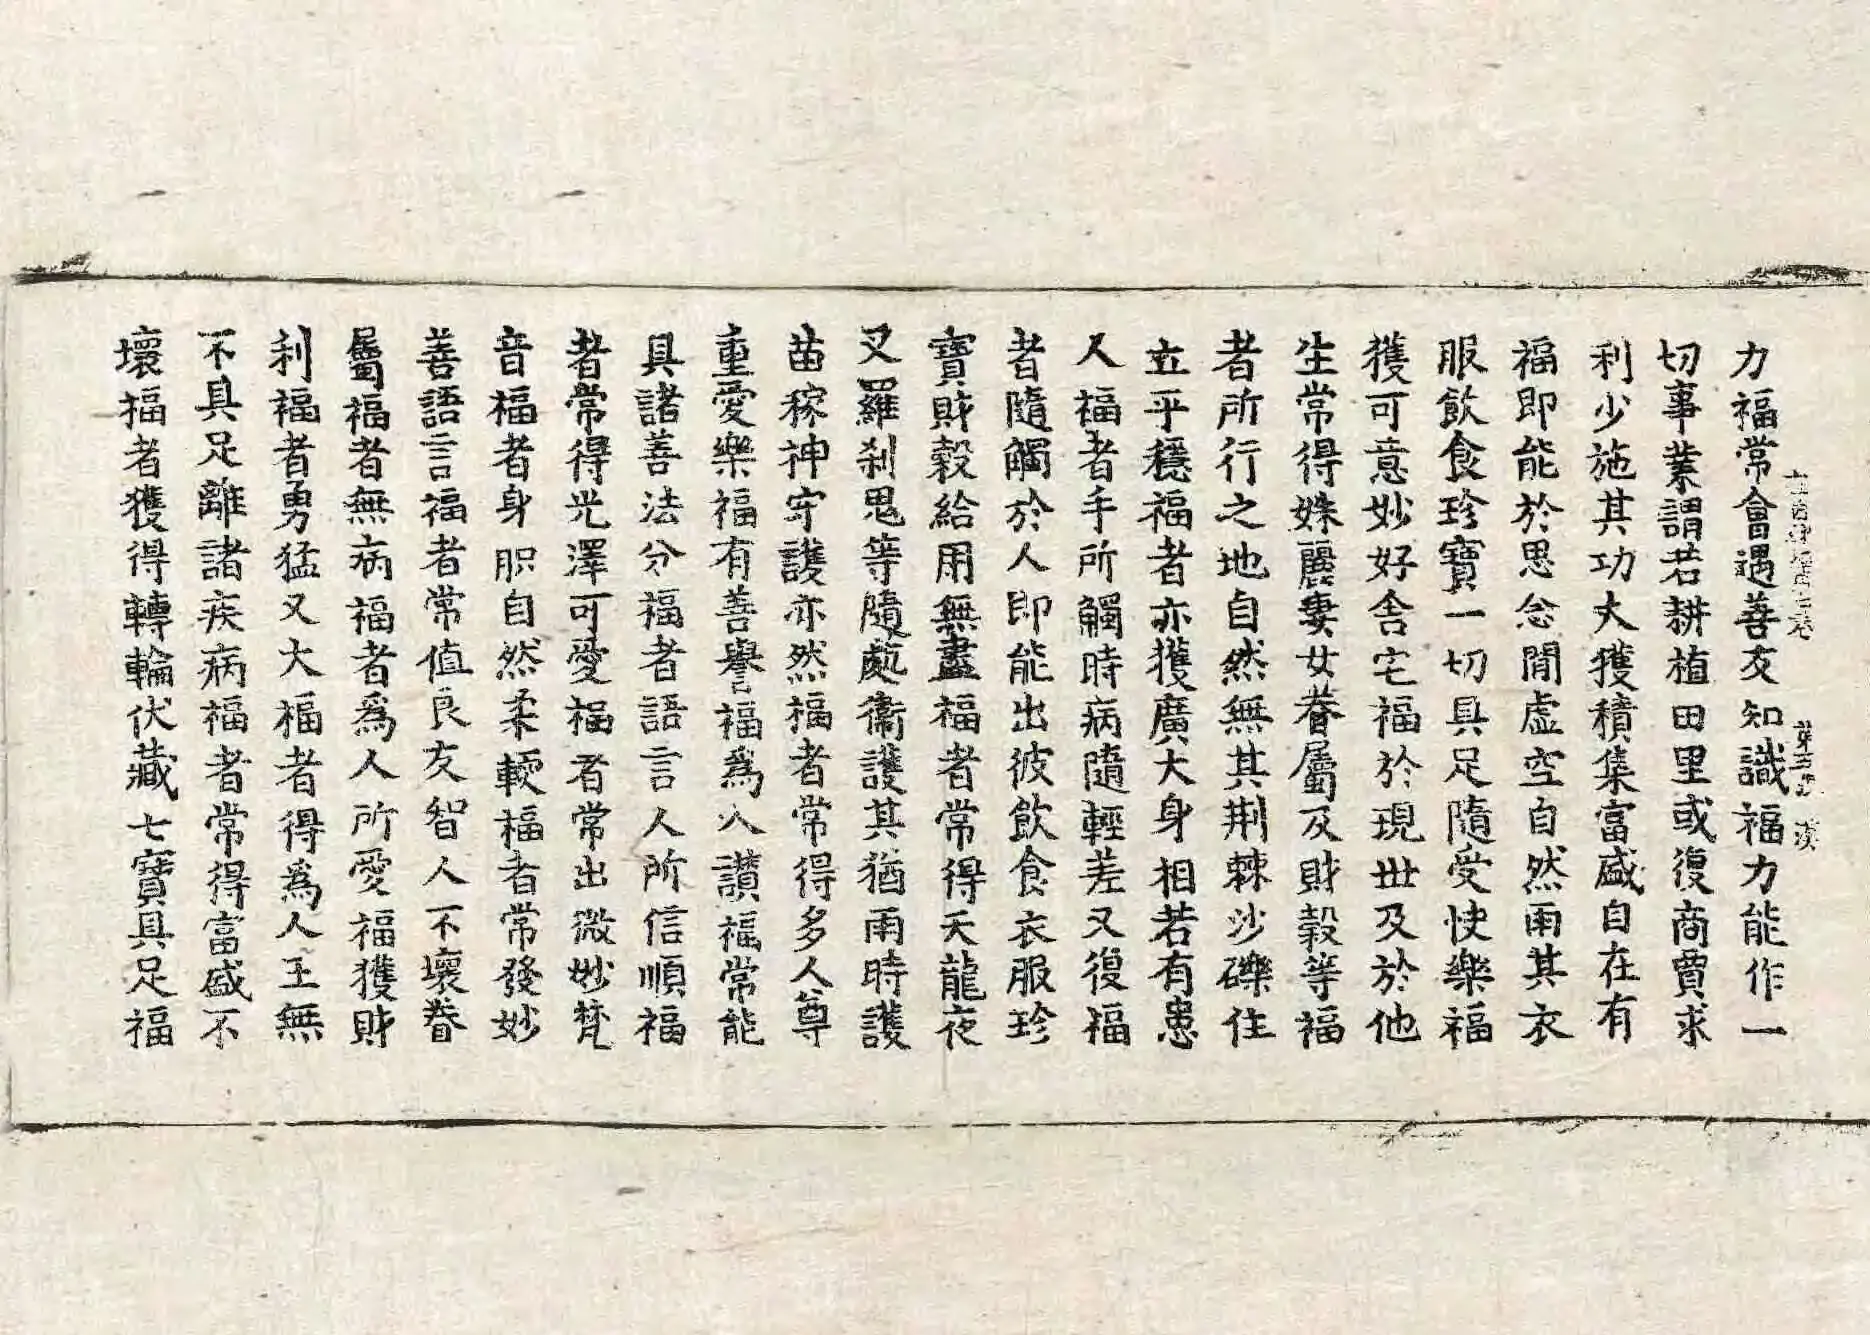 力福常會遇善友知識福力能作一
切事業謂若耕植田里或復商賈求
利少施其功大獲積集富盛自在有
福即能於思念閒虛空自然雨其衣
服飲食珍寶一切具足隨受快樂福
獲可意妙好舍宅福於現世及於他
生常得姝麗妻女眷屬及財穀等福
者所行之地自然無其荆棘沙礫住
立平穩福者亦獲廣大身相若有患
人福者手所觸時病隨輕差又復福
者隨觸於人即能出彼飲食衣服珍
寶財穀給用無盡福者常得天龍夜
叉羅刹鬼等隨處衞護其猶雨時護
苗稼神守護亦然福者常得多人尊
重愛樂福有善譽福為人讃福常能
具諸善法分福者語言人所信順福
者常得光澤可愛福者常出微妙梵
音福者身肢自然柔軟福者常發妙
善語言福者常值良友智人不壞眷
屬福者無病福者爲人所愛福獲財
利福者勇猛又大福者得爲人王無
不具足離諸疾病福者常得富盛不
壞福者獲得轉輪伏藏七寶具足福